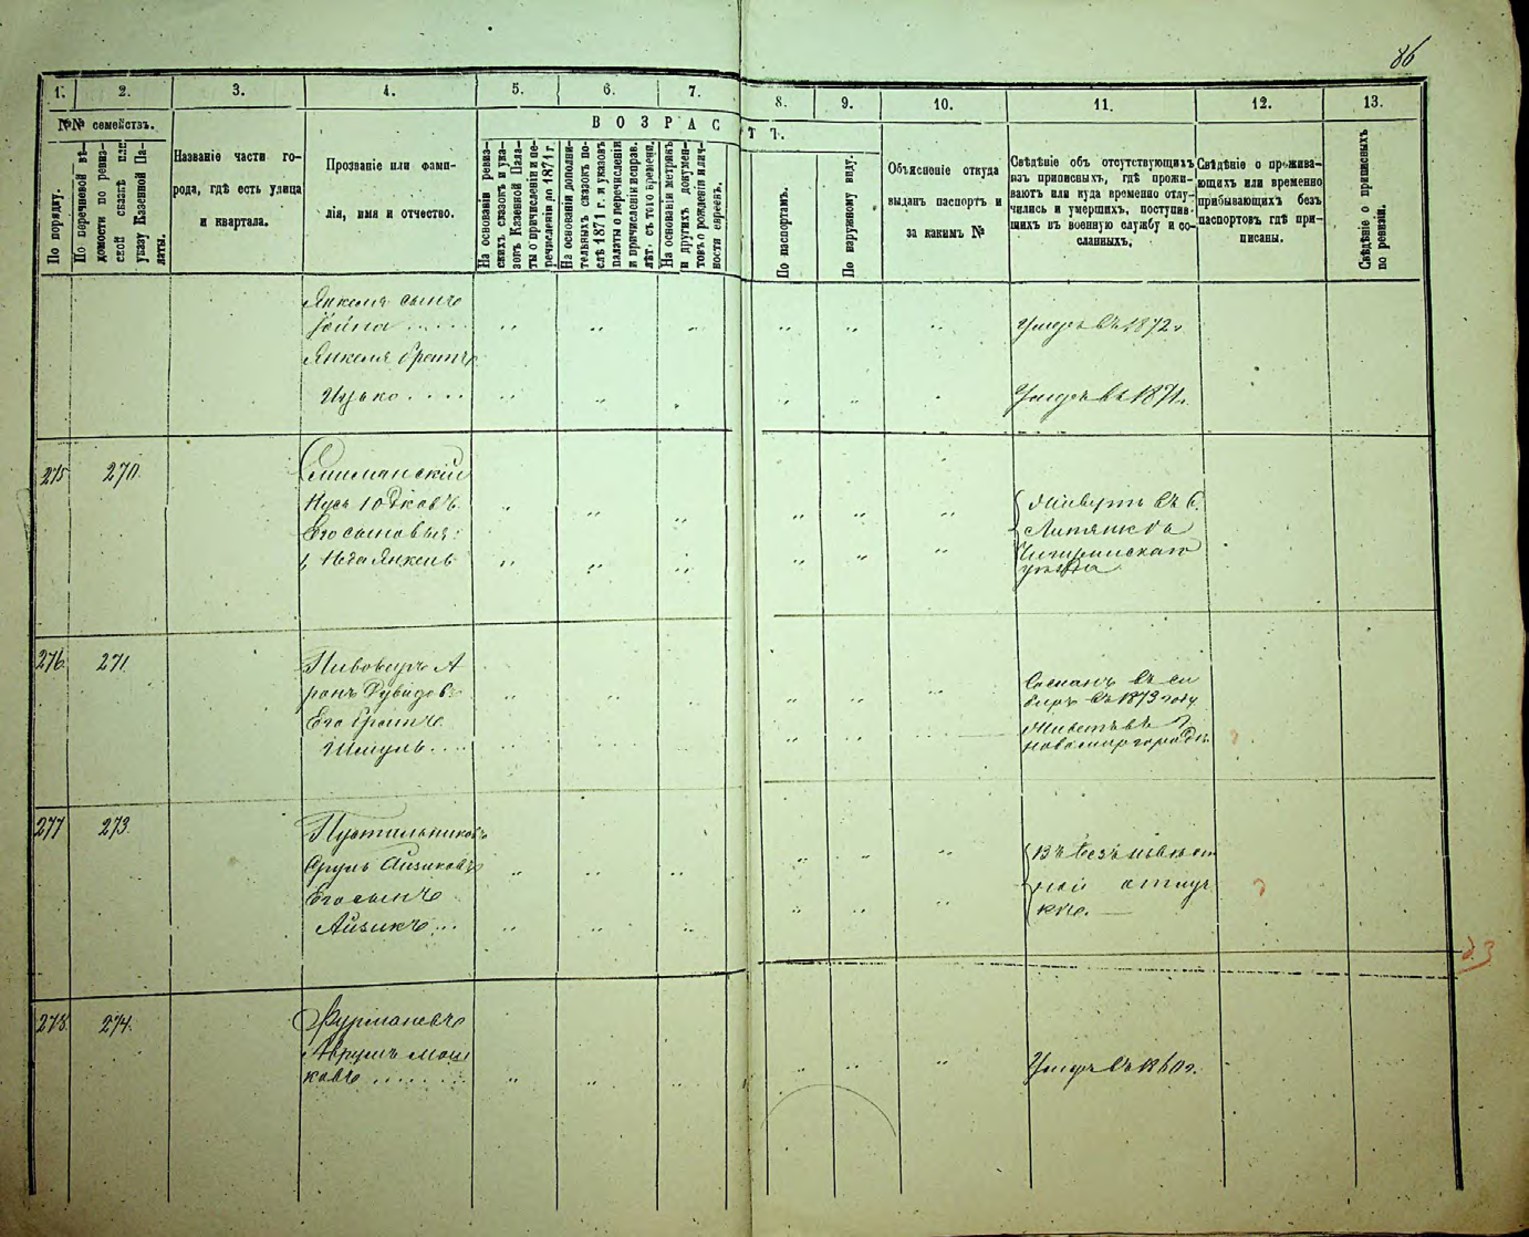 86
1. 2. 3. 4. 5. 6. 7. 8. 9. 10. 11. 12. 13.
№№ семействъ.
ВОЗРАСТЪ.
По порядку.
По перечневой вѣ-
домости по ревиз-
ской сказкѣ или
указу Казенной Па-
латы.
Названіе части го-
рода, гдѣ есть улица
и квартала.
Прозваніе или фами-
лія, имя и отчество.
На основаніи ревиз-
скихъ сказокъ и ука-
зовъ Казенной Пала-
ты о причисленіи и пе-
речисленіи до 1871 г.
На основаніи дополни-
тельныхъ сказокъ по-
слѣ 1871 г. и указовъ
палаты о перечисленіи
и причисленіи исправ.
лѣтъ съ того времени.
На основаніи метрикъ
и другихъ докумен-
товъ о рожденіи и лич-
ности евреевъ.
По паспортамъ.
По наружному виду.
Объясненіе откуда
выданъ паспортъ и
за какимъ №
Свѣдѣніе объ отсутствующихъ
изъ приписныхъ, гдѣ прожи-
ваютъ или куда временно отлу-
чились и умершихъ, поступив-
шихъ въ военную службу и со-
сланныхъ.
Свѣдѣніе о прожива-
ющихъ или временно
прибывающихъ безъ
паспортовъ гдѣ при-
писаны.
Свѣдѣніе о приписныхъ
по ревизіи.
Янкеля сынъ
Іойна
Умеръ въ 1872 г.
Янкеля братъ
Ицько
Умеръ въ 1871 г.
275 270.
Нусь Юдковъ
Его сыновья:
Живутъ въ с.
Чигиринскаго
уѣзда
276. 271
Пивоваръ А
ронъ Дувидов.
Его братъ
Шмуль
Сосланъ въ си
бирь въ 1873 году
Живетъ въ г
Новомиргородѣ
277 273.
Пустыльниковъ
Срулъ Айзиковъ
Его сынъ
Айзикъ
Въ безъизвѣст
ной отлуч
кѣ.
278. 274.
Фурмановъ
Аврумъ Мош
ковъ
Умеръ въ 1860 г.